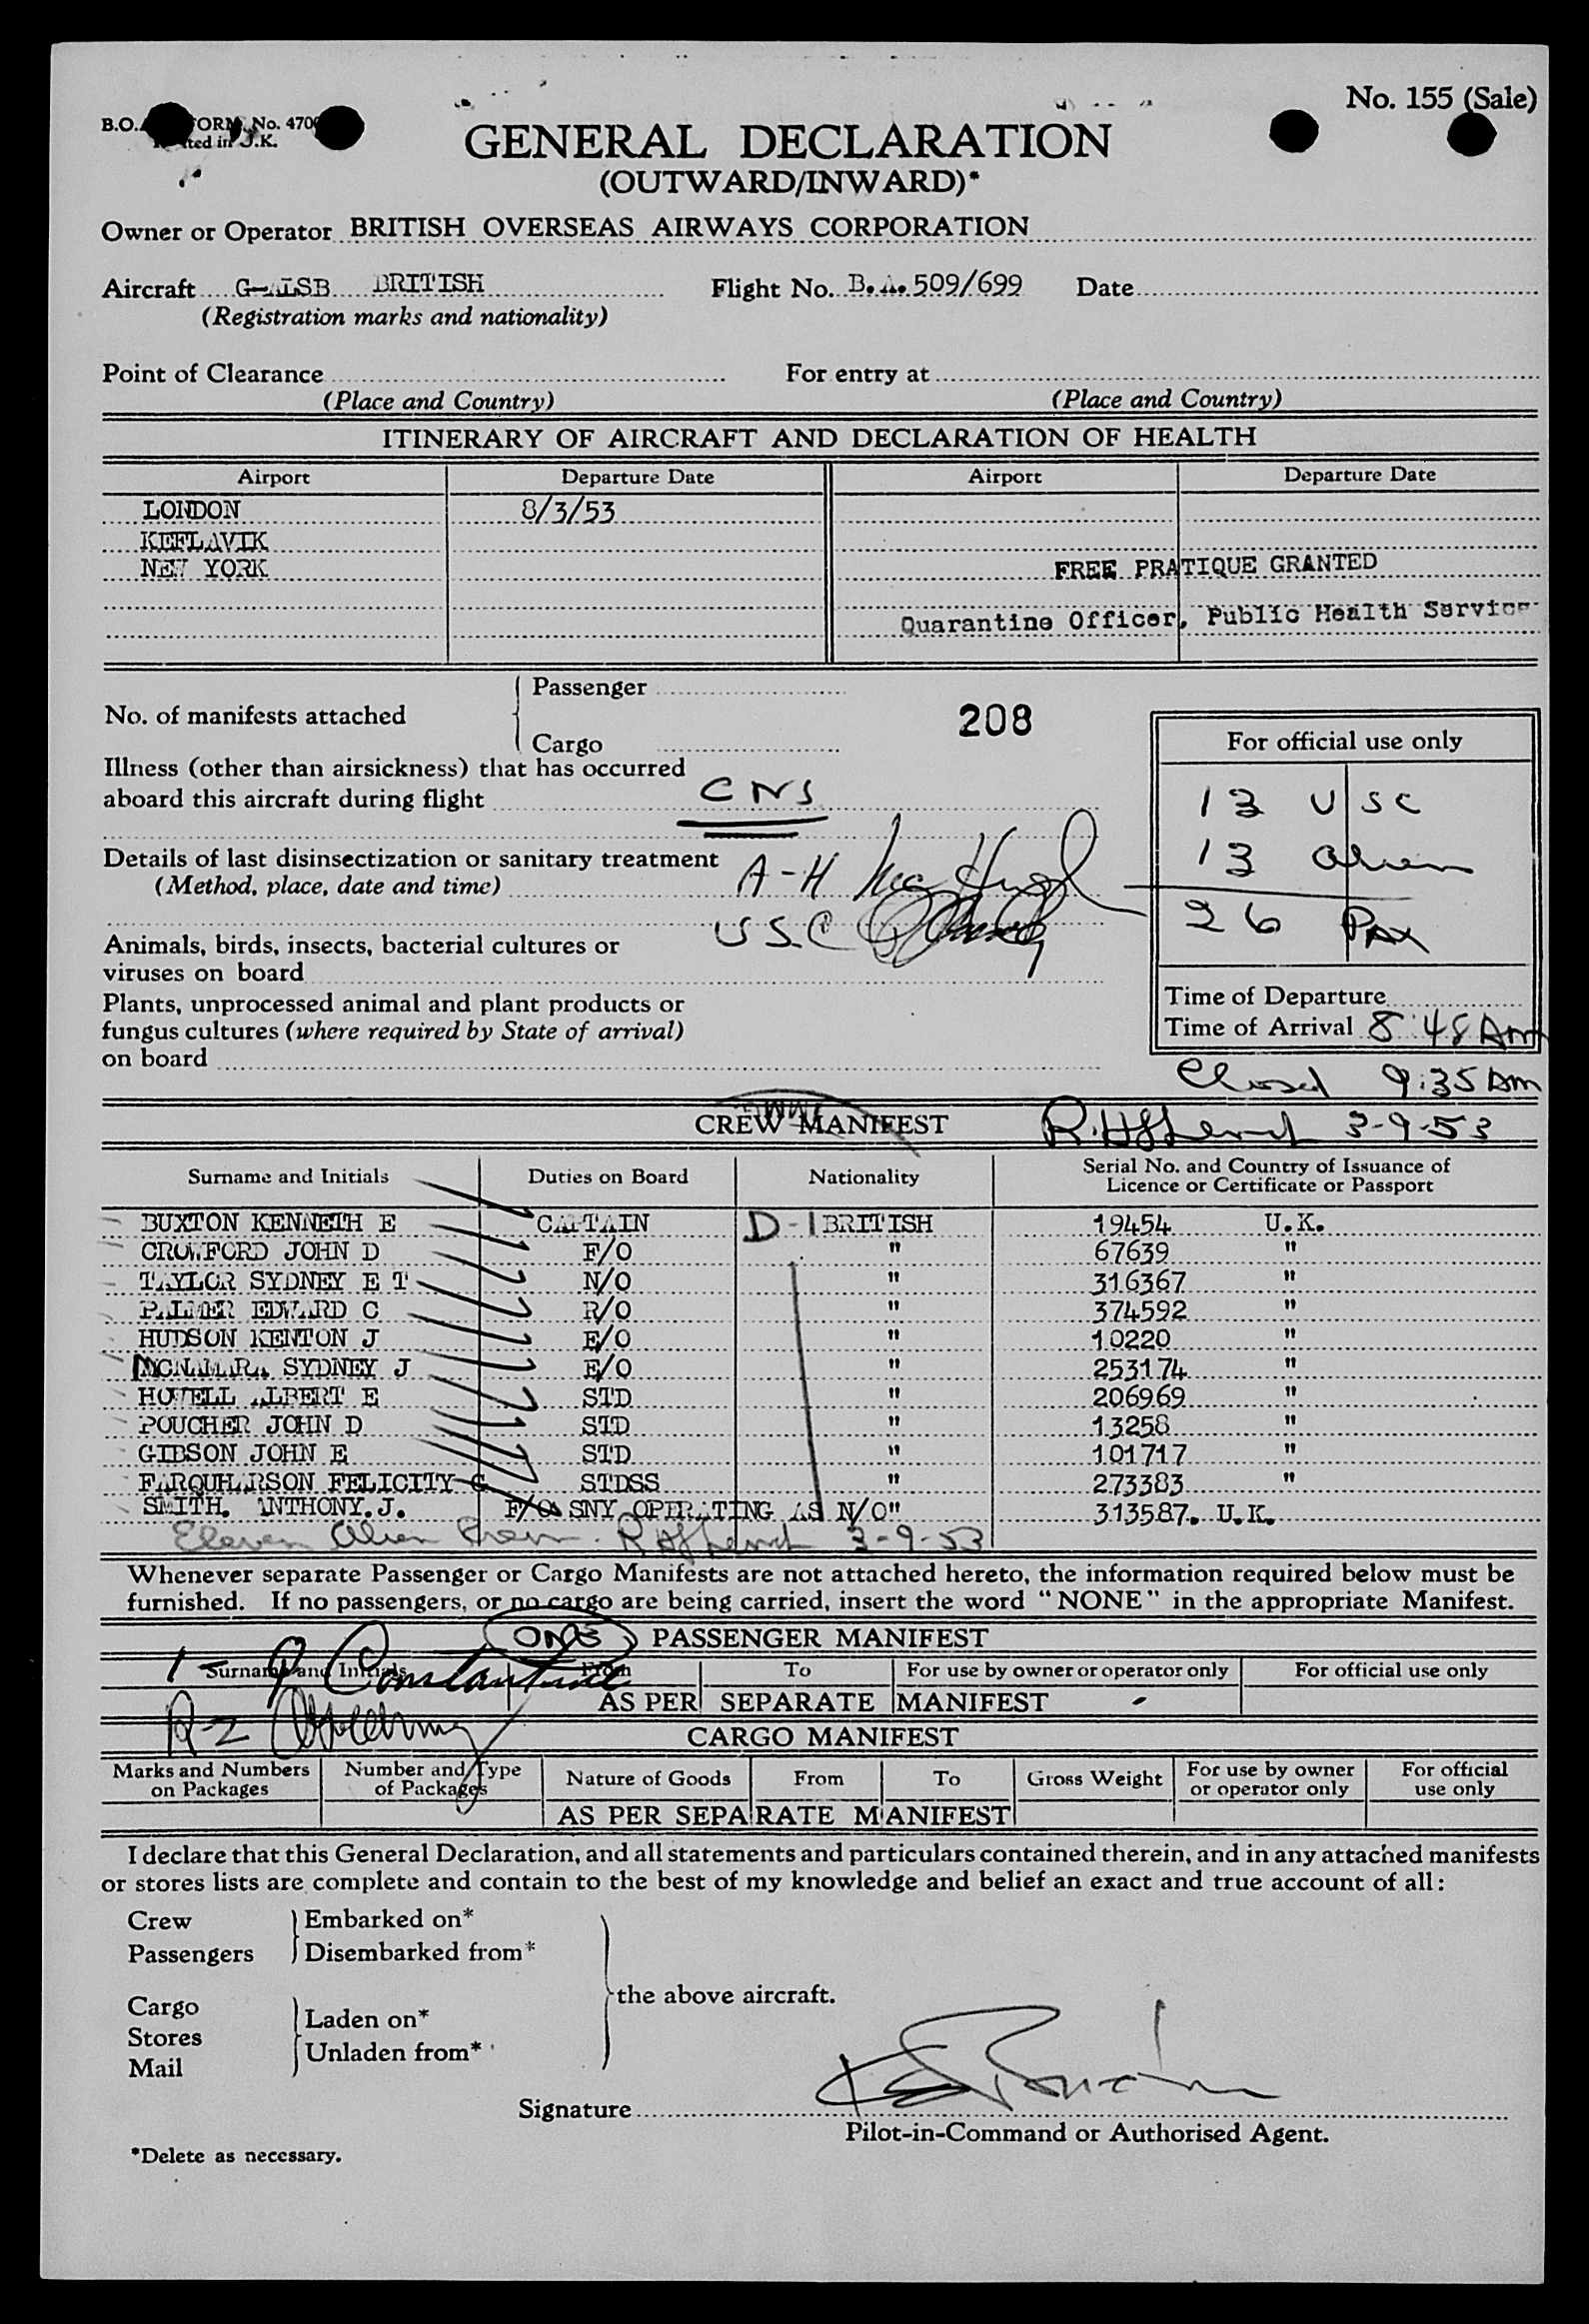 No. 155 (Sale)
No. 470
in U.K.
GENERAL DECLARATION
(OUTWARD/INWARD)*
Owner or Operator BRITISH OVERSEAS AIRWAYS CORPORATION
Aircraft G-ALSB BRITISH Flight No. B.A. 509/699 Date
(Registration marks and nationality)
Point of Clearance For entry at
(Place and Country) (Place and Country)
ITINERARY OF AIRCRAFT AND DECLARATION OF HEALTH
Airport Departure Date Airport Departure Date
LONDON 8/3/53
KEFLAVIK
NEW YORK FREE PRATIQUE GRANTED
Quarantine Officer, Public Health Service
Passenger
No. of manifests attached 208
Cargo
For official use only
Illness (other than airsickness) that has occurred
aboard this aircraft during flight CNS
13 USC
13 alien
26 PAX
Details of last disinsectization or sanitary treatment
(Method, place, date and time) A-H
USC
Animals, birds, insects, bacterial cultures or
viruses on board
Plants, unprocessed animal and plant products or
fungus cultures (where required by State of arrival)
on board
Time of Departure
Time of Arrival 8:48 Am
Closed 9:35 Am
CREW MANIFEST 3-9-53
Surname and Initials Duties on Board Nationality Serial No. and Country of Issuance of
Licence or Certificate or Passport
BUXTON KENNETH E CAPTAIN D-1 BRITISH 19454 U.K.
CROWFORD JOHN D F/O " 67639 "
TAYLOR SYDNEY E T N/O " 316367 "
PALMER EDWARD C R/O " 374592 "
HUDSON KENTON J E/O " 10220 "
MCNAMARA SYDNEY J E/O " 253174 "
HOWELL ALBERT E STD " 206969 "
POUCHER JOHN D STD " 13258 "
GIBSON JOHN E STD " 101717 "
FARQUHARSON FELICITY G STDSS " 273383 "
SMITH. ANTHONY.J. F/O SNY OPERATING AS N/O" 313587. U.K.
Eleven Alien Crew. 3-9-53
Whenever separate Passenger or Cargo Manifests are not attached hereto, the information required below must be
furnished. If no passengers, or no cargo are being carried, insert the word "NONE" in the appropriate Manifest.
ONE PASSENGER MANIFEST
1 - Constantine
Surname and Initials From To For use by owner or operator only For official use only
AS PER SEPARATE MANIFEST -
R-2
CARGO MANIFEST
Marks and Numbers on Packages Number and Type of Packages Nature of Goods From To Gross Weight For use by owner or operator only For official use only
AS PER SEPARATE MANIFEST
I declare that this General Declaration, and all statements and particulars contained therein, and in any attached manifests
or stores lists are complete and contain to the best of my knowledge and belief an exact and true account of all:
Crew Embarked on*
Passengers Disembarked from*
the above aircraft.
Cargo
Laden on*
Stores
Unladen from*
Mail
Signature
Pilot-in-Command or Authorised Agent.
*Delete as necessary.